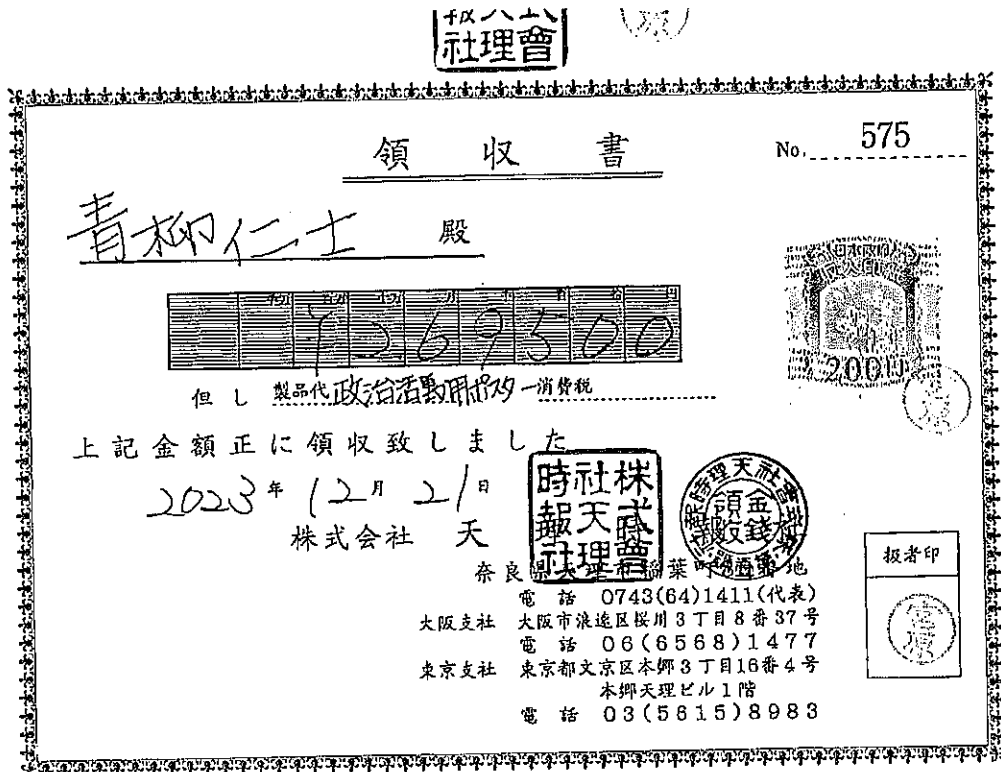 社理會
領収書
No. 575
青柳仁士 殿
千万 百万 十万 万 千 百 拾 円
¥269500
200円
但し 製品代 政治活動用ポスター 消費税
上記金額正に領収致しました
2023年 12月 21日
株式会社 天
株式會社天理時報社
金錢領收
奈良県天理市稲葉町
電話 0743(64)1411(代表)
大阪支社 大阪市浪速区桜川3丁目8番37号
電話 06(6568)1477
東京支社 東京都文京区本郷3丁目16番4号
本郷天理ビル1階
電話 03(5615)8983
扱者印